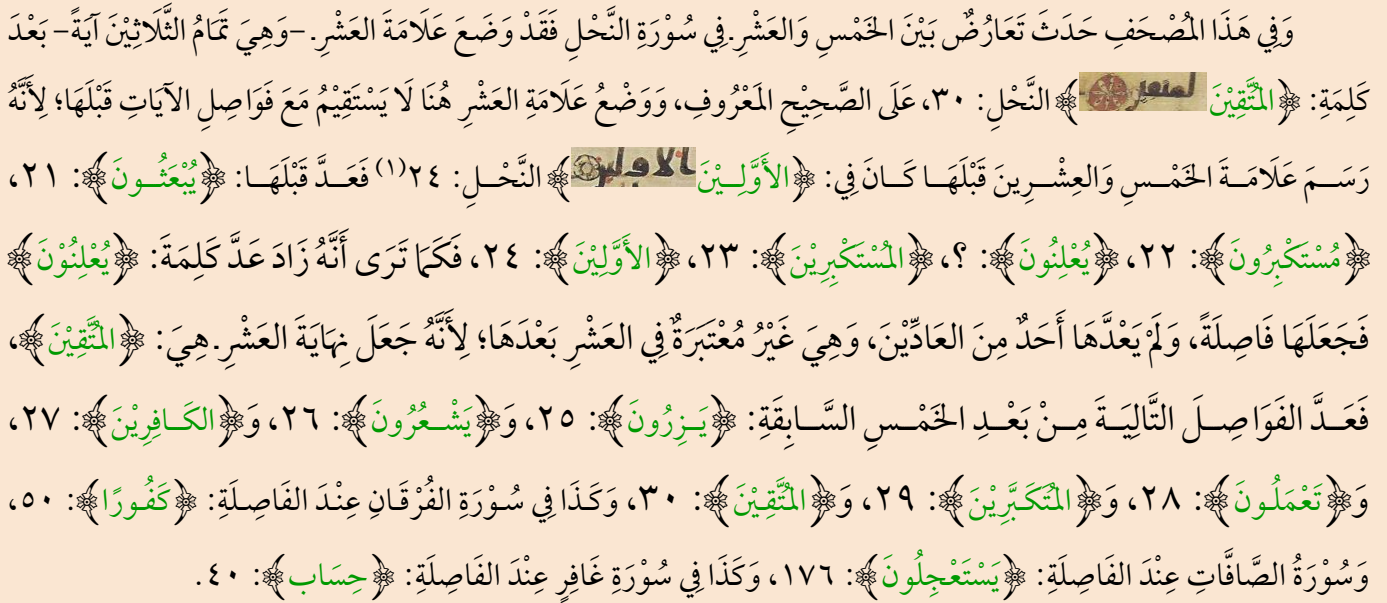 وَفِي هَذَا المُصْحَفِ حَدَثَ تَعَارُضٌ بَيْنَ الخَمْسِ وَالعَشْرِ. فِي سُوْرَةِ النَّحْلِ فَقَدْ وَضَعَ عَلَامَةَ العَشْرِ. -وَهِيَ تَمَامُ الثَّلَاثِيْنَ آيَةً- بَعْدَ
كَلِمَةِ: ﴿المُتَّقِيْنَ لمتقين﴾ النَّحْلِ: ٣٠، عَلَى الصَّحِيْحِ المَعْرُوفِ، وَوَضْعُ عَلَامَةِ العَشْرِ هُنَا لَا يَسْتَقِيْمُ مَعَ فَوَاصِلِ الآيَاتِ قَبْلَهَا؛ لِأَنَّهُ
رَسَمَ عَلَامَةَ الخَمْسِ وَالعِشْرِينَ قَبْلَهَا كَانَ فِي: ﴿الأَوَّلِيْنَ الاولين﴾ النَّحْلِ: ٢٤(١) فَعَدَّ قَبْلَهَا: ﴿يُبْعَثُونَ﴾: ٢١،
﴿مُسْتَكْبِرُونَ﴾: ٢٢، ﴿يُعْلِنُونَ﴾: ؟، ﴿المُسْتَكْبِرِيْنَ﴾: ٢٣، ﴿الأَوَّلِيْنَ﴾: ٢٤، فَكَمَا تَرَى أَنَّهُ زَادَ عَدَّ كَلِمَةَ: ﴿يُعْلِنُوْنَ﴾
فَجَعَلَهَا فَاصِلَةً، وَلَمْ يَعْدَّهَا أَحَدٌ مِنَ العَادِّيْنَ، وَهِيَ غَيْرُ مُعْتَبَرَةٌ فِي العَشْرِ بَعْدَهَا؛ لِأَنَّهُ جَعَلَ نِهَايَةَ العَشْرِ. هِيَ: ﴿المُتَّقِيْنَ﴾،
فَعَدَّ الفَوَاصِلَ التَّالِيَةَ مِنْ بَعْدِ الخَمْسِ السَّابِقَةِ: ﴿يَزِرُونَ﴾: ٢٥، وَ﴿يَشْعُرُونَ﴾: ٢٦، وَ﴿الكَافِرِيْنَ﴾: ٢٧،
وَ﴿تَعْمَلُونَ﴾: ٢٨، وَ﴿المُتَكَبَّرِيْنَ﴾: ٢٩، وَ﴿المُتَّقِيْنَ﴾: ٣٠، وَكَذَا فِي سُوْرَةِ الفُرْقَانِ عِنْدَ الفَاصِلَةِ: ﴿كَفُورًا﴾: ٥٠،
وَسُوْرَةُ الصَّافَّاتِ عِنْدَ الفَاصِلَةِ: ﴿يَسْتَعْجِلُونَ﴾: ١٧٦، وَكَذَا فِي سُوْرَةِ غَافِرٍ عِنْدَ الفَاصِلَةِ: ﴿حِسَابٍ﴾: ٤٠.